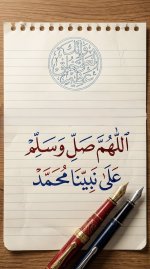 اَللّٰهُمَّ صَلِّ وَسَلِّمْ
عَلَىٰ نَبِيِّنَا مُحَمَّدْ